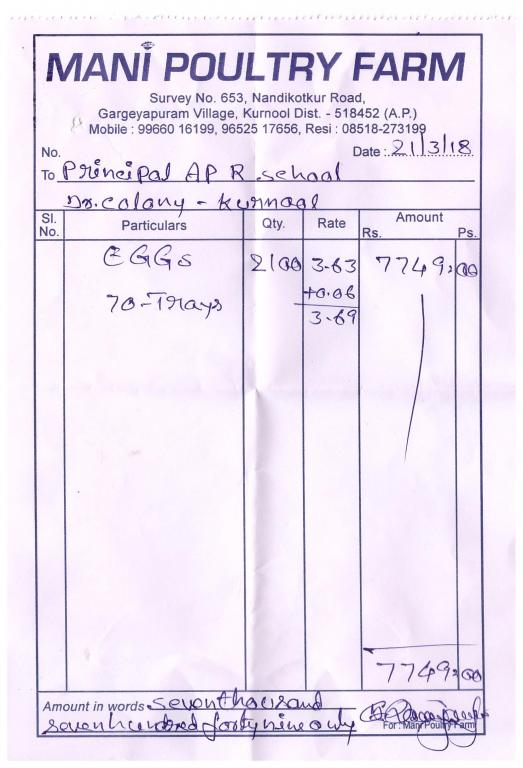 MANI POULTRY FARM
Survey No. 653, Nandikotkur Road,
Gargeyapuram Village, Kurnool Dist. - 518452 (A.P.)
Mobile : 99660 16199, 96525 17656, Resi : 08518-273199
No. Date : 21/3/18
To Principal AP R school
Dr. colany - kurnool
Sl. No. Particulars Qty. Rate Amount Rs. Ps.
EGGs 2100 3.63 7749.00
70-Trays +0.06
3.69
7749.00
Amount in words seventhousand
sevenhundred fortynine only
For : Mani Poultry Farm